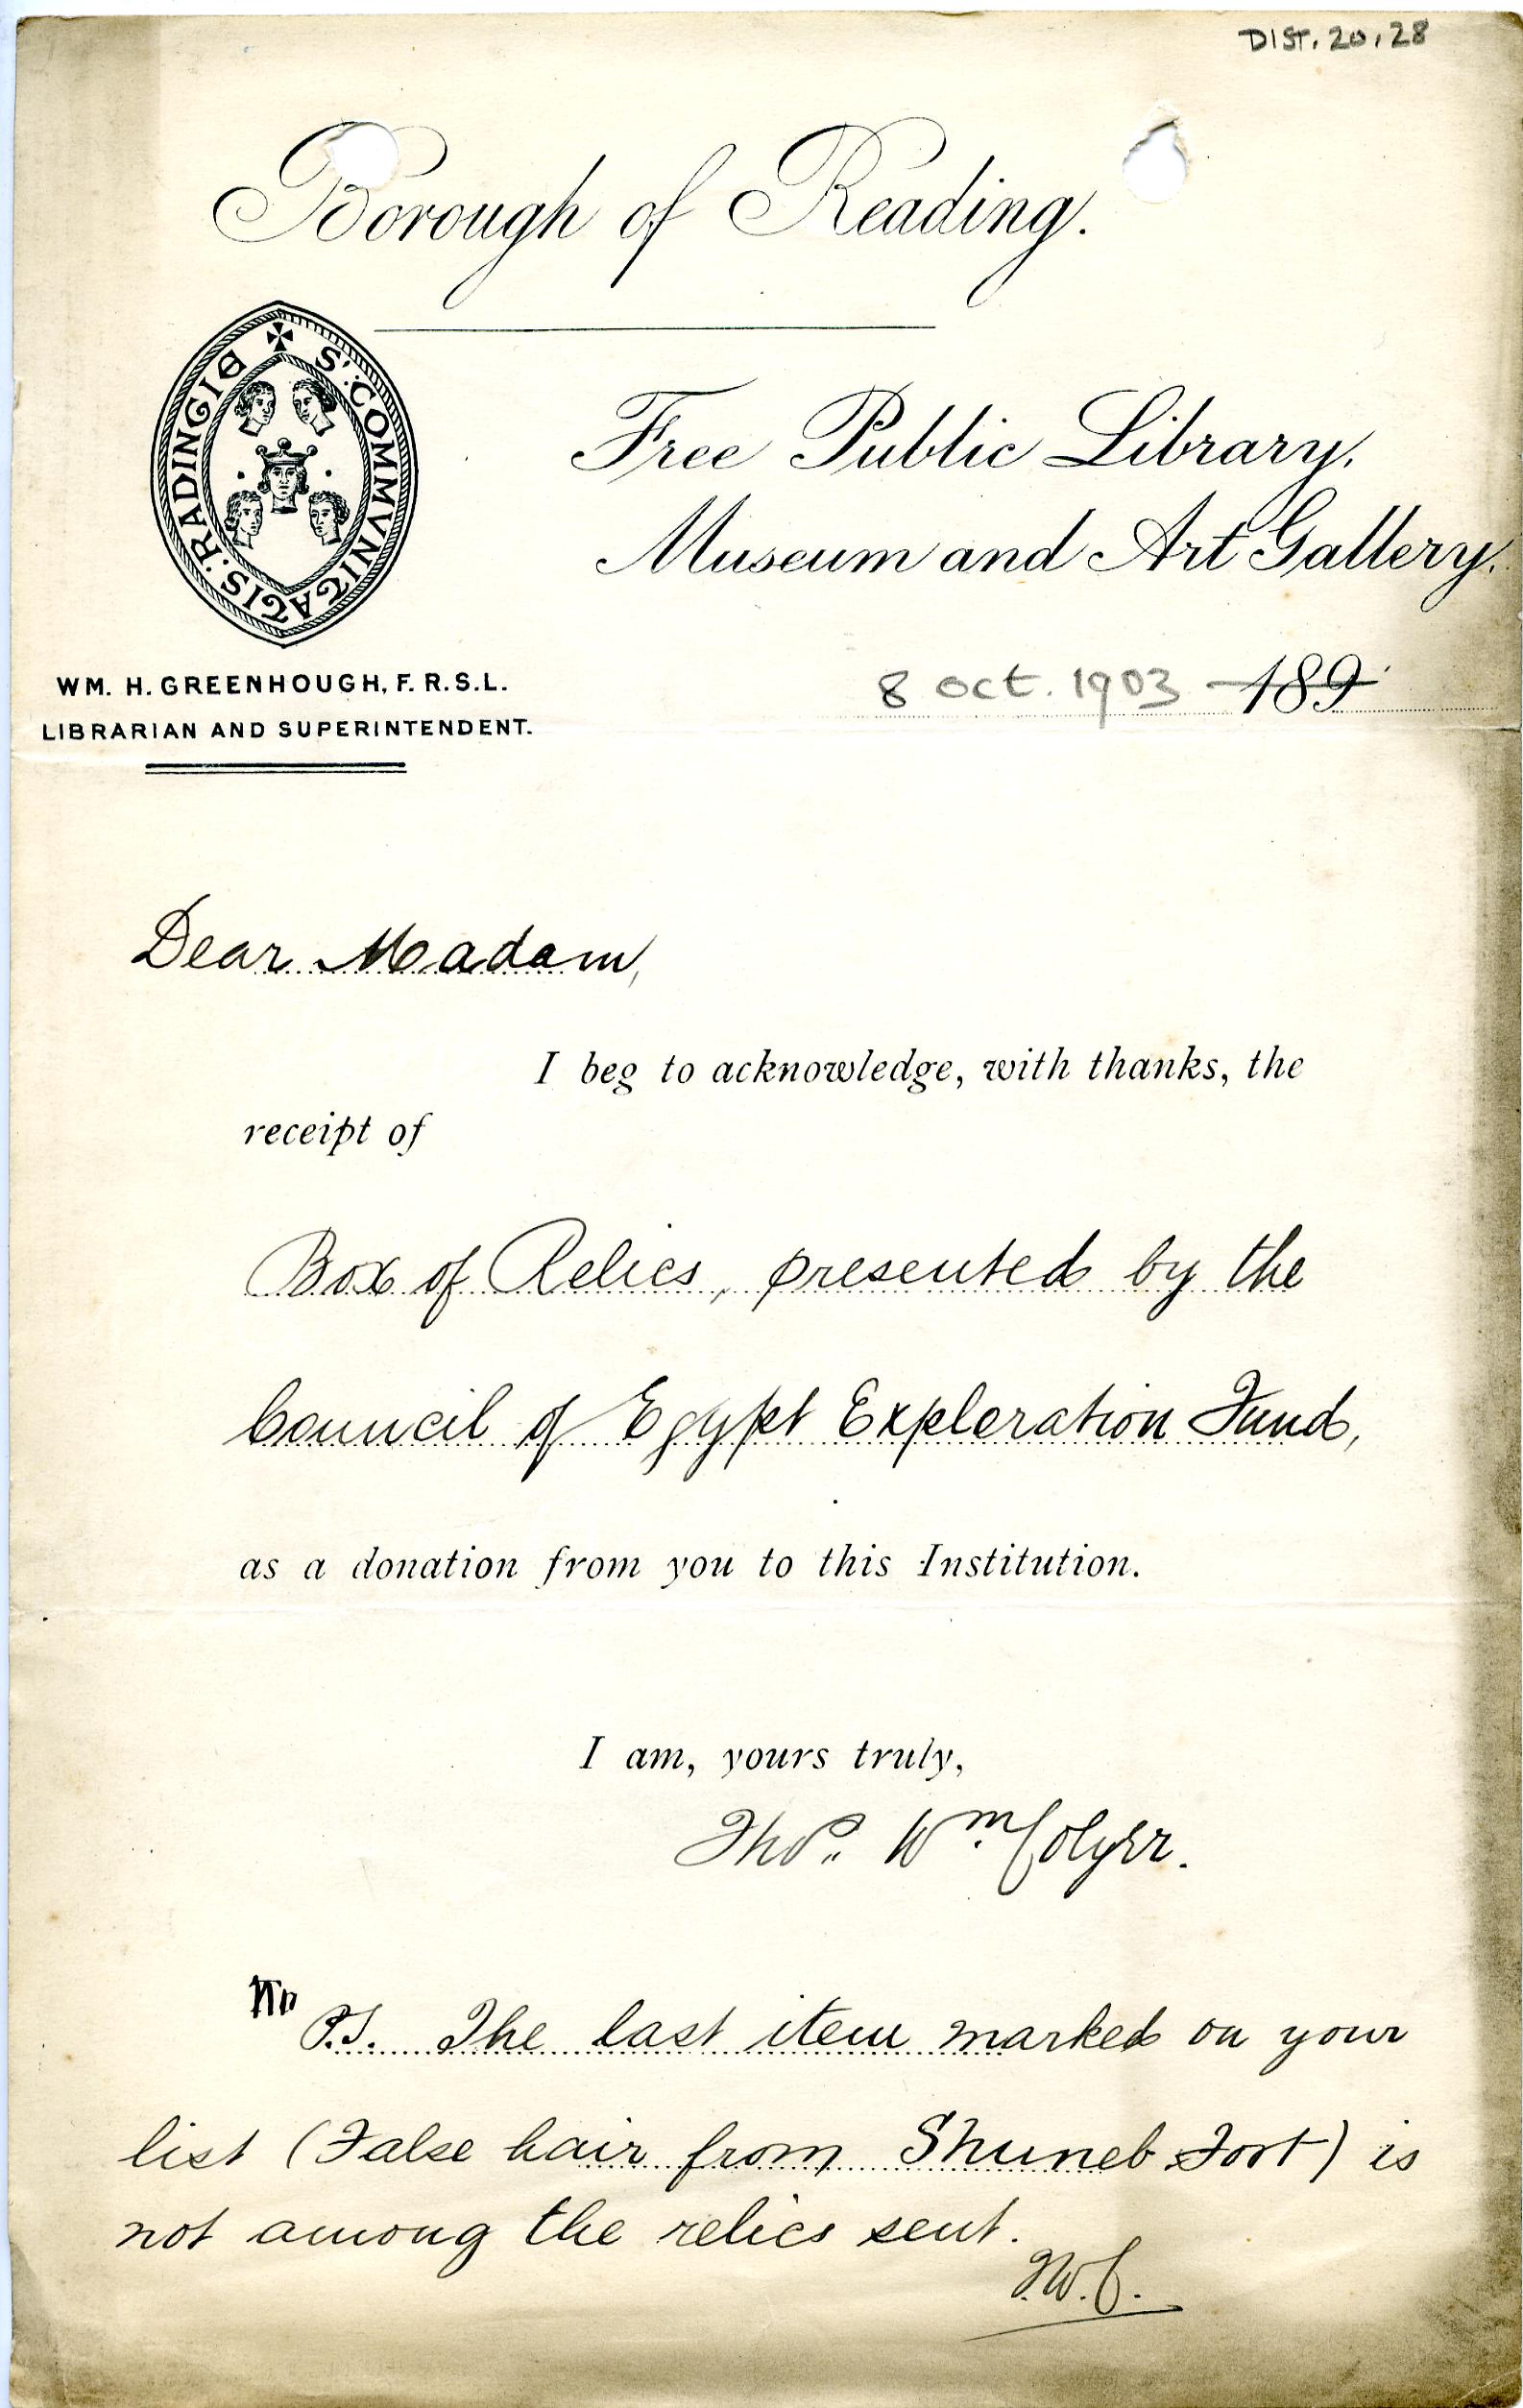 DIST. 20.28
Borough of Reading.
S' COMMVNITATIS : RADINGIE
Free Public Library,
Museum and Art Gallery.
WM. H. GREENHOUGH, F.R.S.L.
LIBRARIAN AND SUPERINTENDENT.
8 Oct. 1903 189
Dear Madam,
I beg to acknowledge, with thanks, the
receipt of
Box of Relics, presented by the
Council of Egypt Exploration Fund,
as a donation from you to this Institution.
I am, yours truly,
Thos. Wm. Colyer.
P.S. The last item marked on your
list (False hair from Shuneb Fort) is
not among the relics sent.
T.W.C.